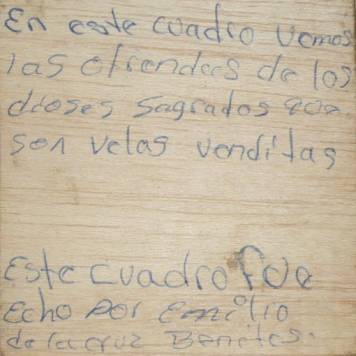 En este cuadro vemos
las ofrendas de los
dioses sagrados que
son velas venditas
Este cuadro fue
echo por Emilio
de la cruz Benites.